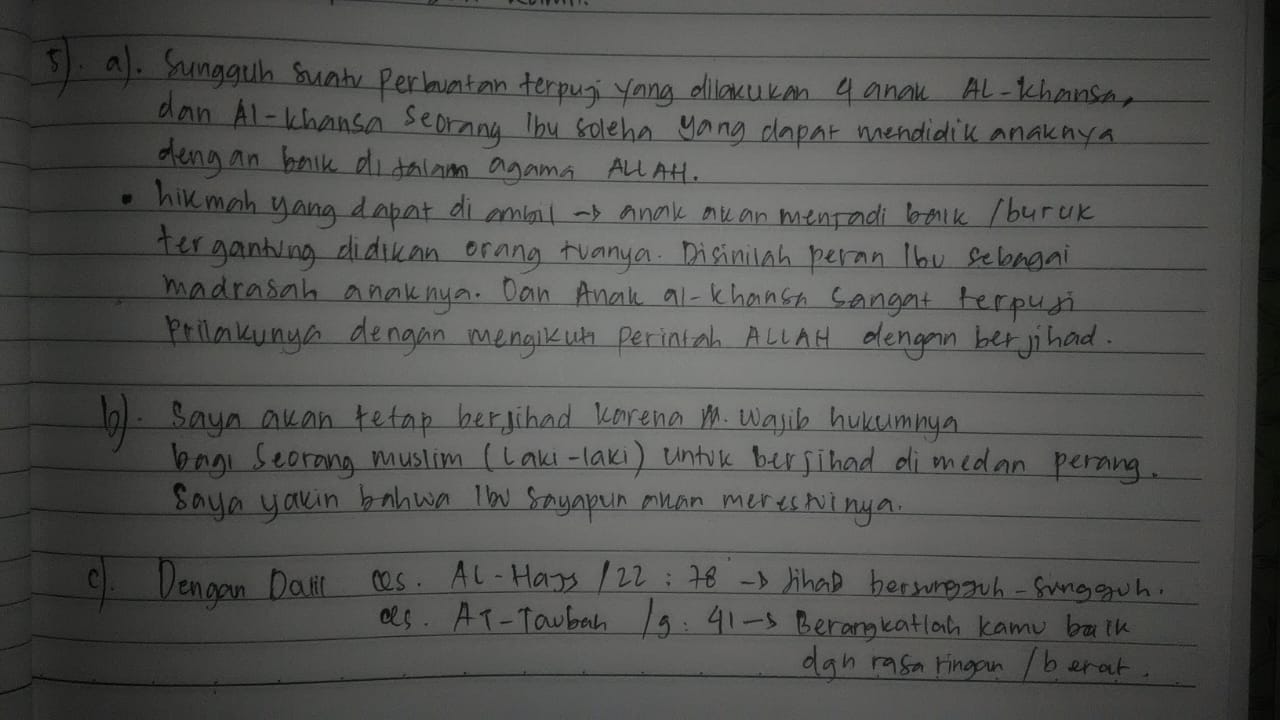 5). a). Sungguh suatu Perbuatan terpuji yang dilakukan 4 anak AL-Khansa,
dan Al-Khansa Seorang Ibu soleha yang dapat mendidik anaknya
dengan baik di dalam agama ALLAH.
• hikmah yang dapat di ambil → anak akan menjadi baik /buruk
tergantung didikan orang tuanya. Disinilah peran Ibu sebagai
madrasah anaknya. Dan Anak al-khansa Sangat terpuji
Prilakunya dengan mengikuti perintah ALLAH dengan berjihad.
b). Saya akan tetap berjihad karena M. Wajib hukumnya
bagi Seorang muslim (Laki-laki) Untuk berjihad di medan perang.
Saya yakin bahwa Ibu Sayapun akan merestuinya.
c). Dengan Dalil Qs. AL-Hajj /22 : 78 → Jihad bersungguh-Sungguh.
Qs. AT-Taubah /9: 41 → Berangkatlah kamu baik
dgn rasa ringan /berat.